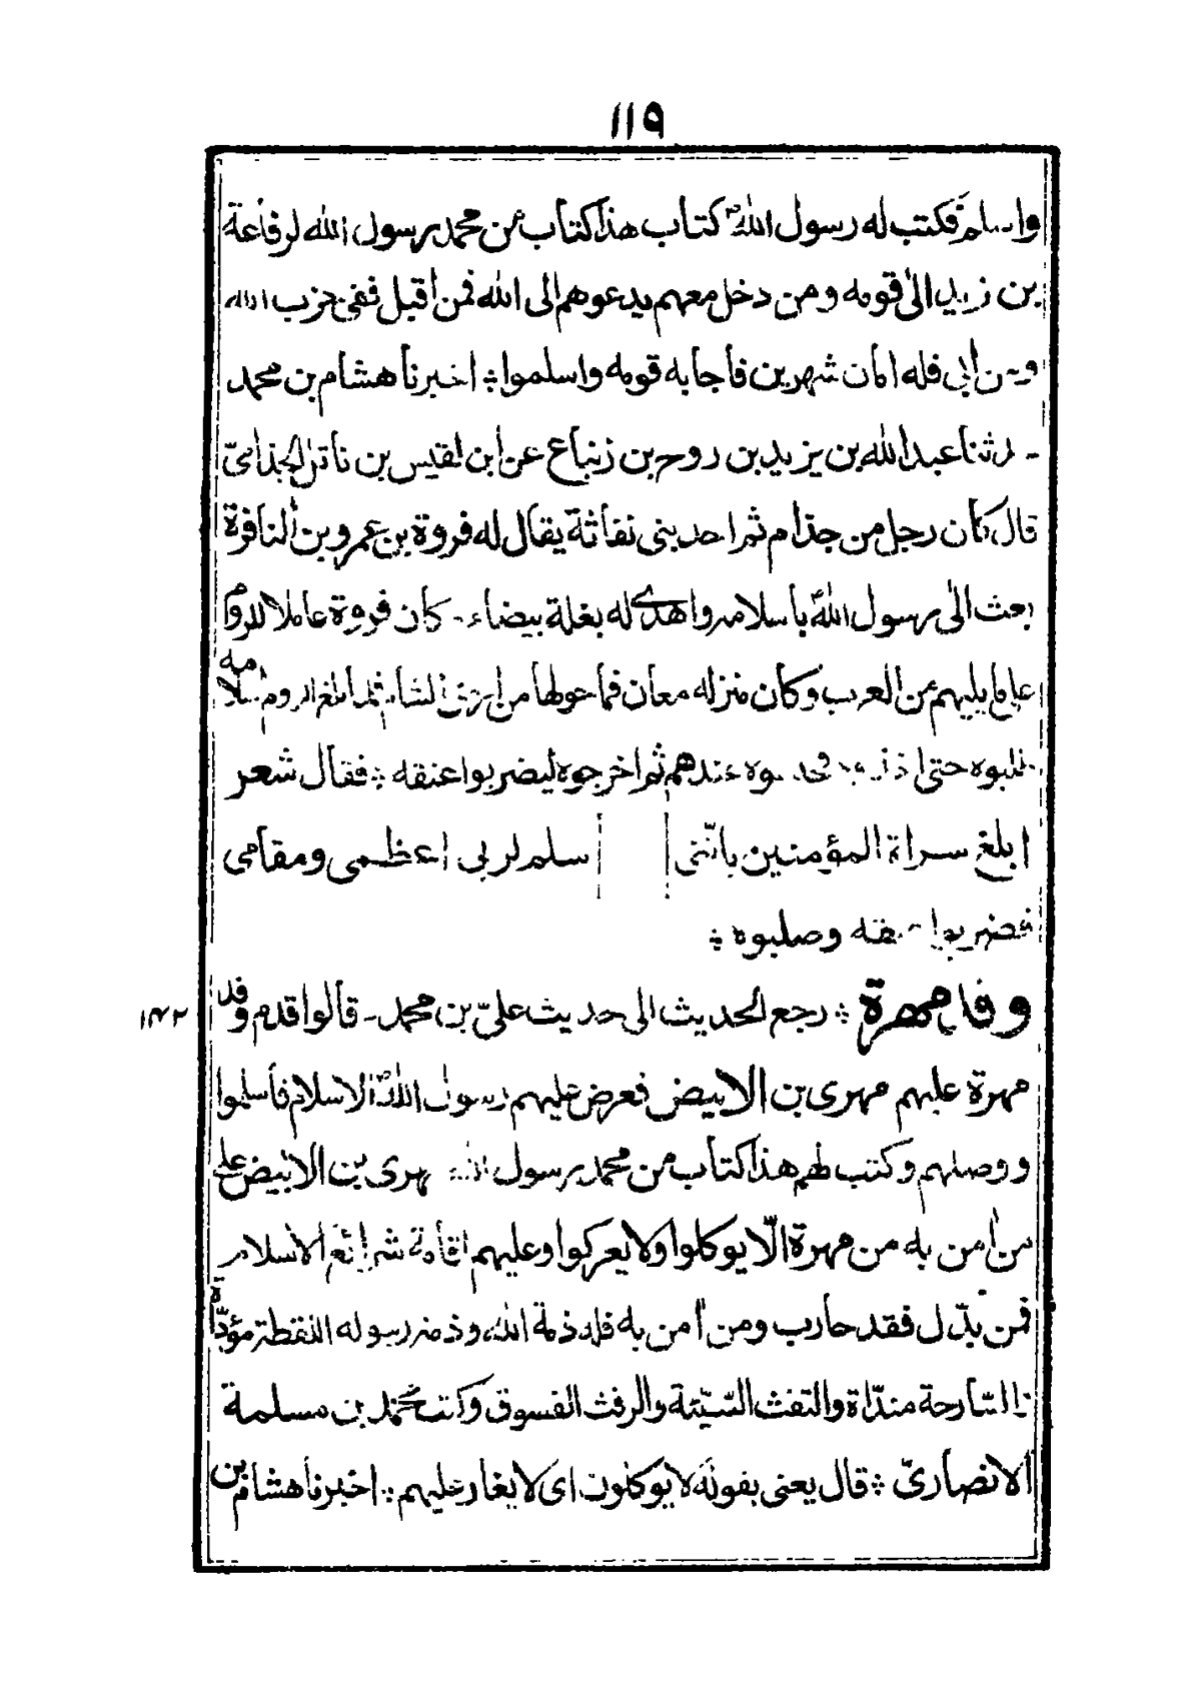 ١١٩
واسلم فكتب له رسول اللهؐ كتاب هذا كتاب من محمد رسول الله لرفاعة
بن زيد الى قومه ومن دخل معهم يدعوهم الى الله فمن أقبل ففى حزب الله
ومن أبى فله امان شهرين فأجابه قومه واسلموا ؞ اخبرنا هشام بن محمد
ثنا عبد الله بن يزيد بن روح بن زنباع عن ابن لقيس بن ناتل الجذامىّ
قال كان رجل من جذام ثم احد بنى نفاثة يقال له فروة بن عمرو بن النافرة
بعث الى رسول اللهؐ باسلامه واهدى له بغلة بيضاء - كان فروة عاملا للروم
على ما يليهم من العرب وكان منزله معان فما حولها من ارض الشام فلما بلغ الروم اسلامه
طلبوه حتى اخذوه عندهم ثم اخرجوه ليضربوا عنقه ؞ فقال شعر
ابلغ سراة المؤمنين بانّنى سلم لربى اعظمى ومقامى
فضربوا عنقه وصلبوه ؞
وفد مهرة ؞ رجع الحديث الى حديث علىّ بن محمد - قالوا قدم وفد
١٤٢
مهرة عليهم مهرى بن الابيض فعرض عليهم رسول اللهؐ الاسلام فأسلموا
ووصلهم وكتب لهم هذا كتاب من محمد رسول الله لمهرى بن الابيض على
من أمن به من مهرة الّا يوكلوا ولا يعركوا وعليهم اقامة شرائع الاسلام
فمن بدّل فقد حارب ومن أمن به فله ذمة الله وذمة رسوله اللقطة مؤدّاة
والسّارحة مندّاة والتفث السّيّئة والرفث الفسوق وكتب محمد بن مسلمة
الانصارىّ ؞ قال يعنى بقوله لا يوكلون اى لا يغار عليهم ؞ اخبرنا هشام بن